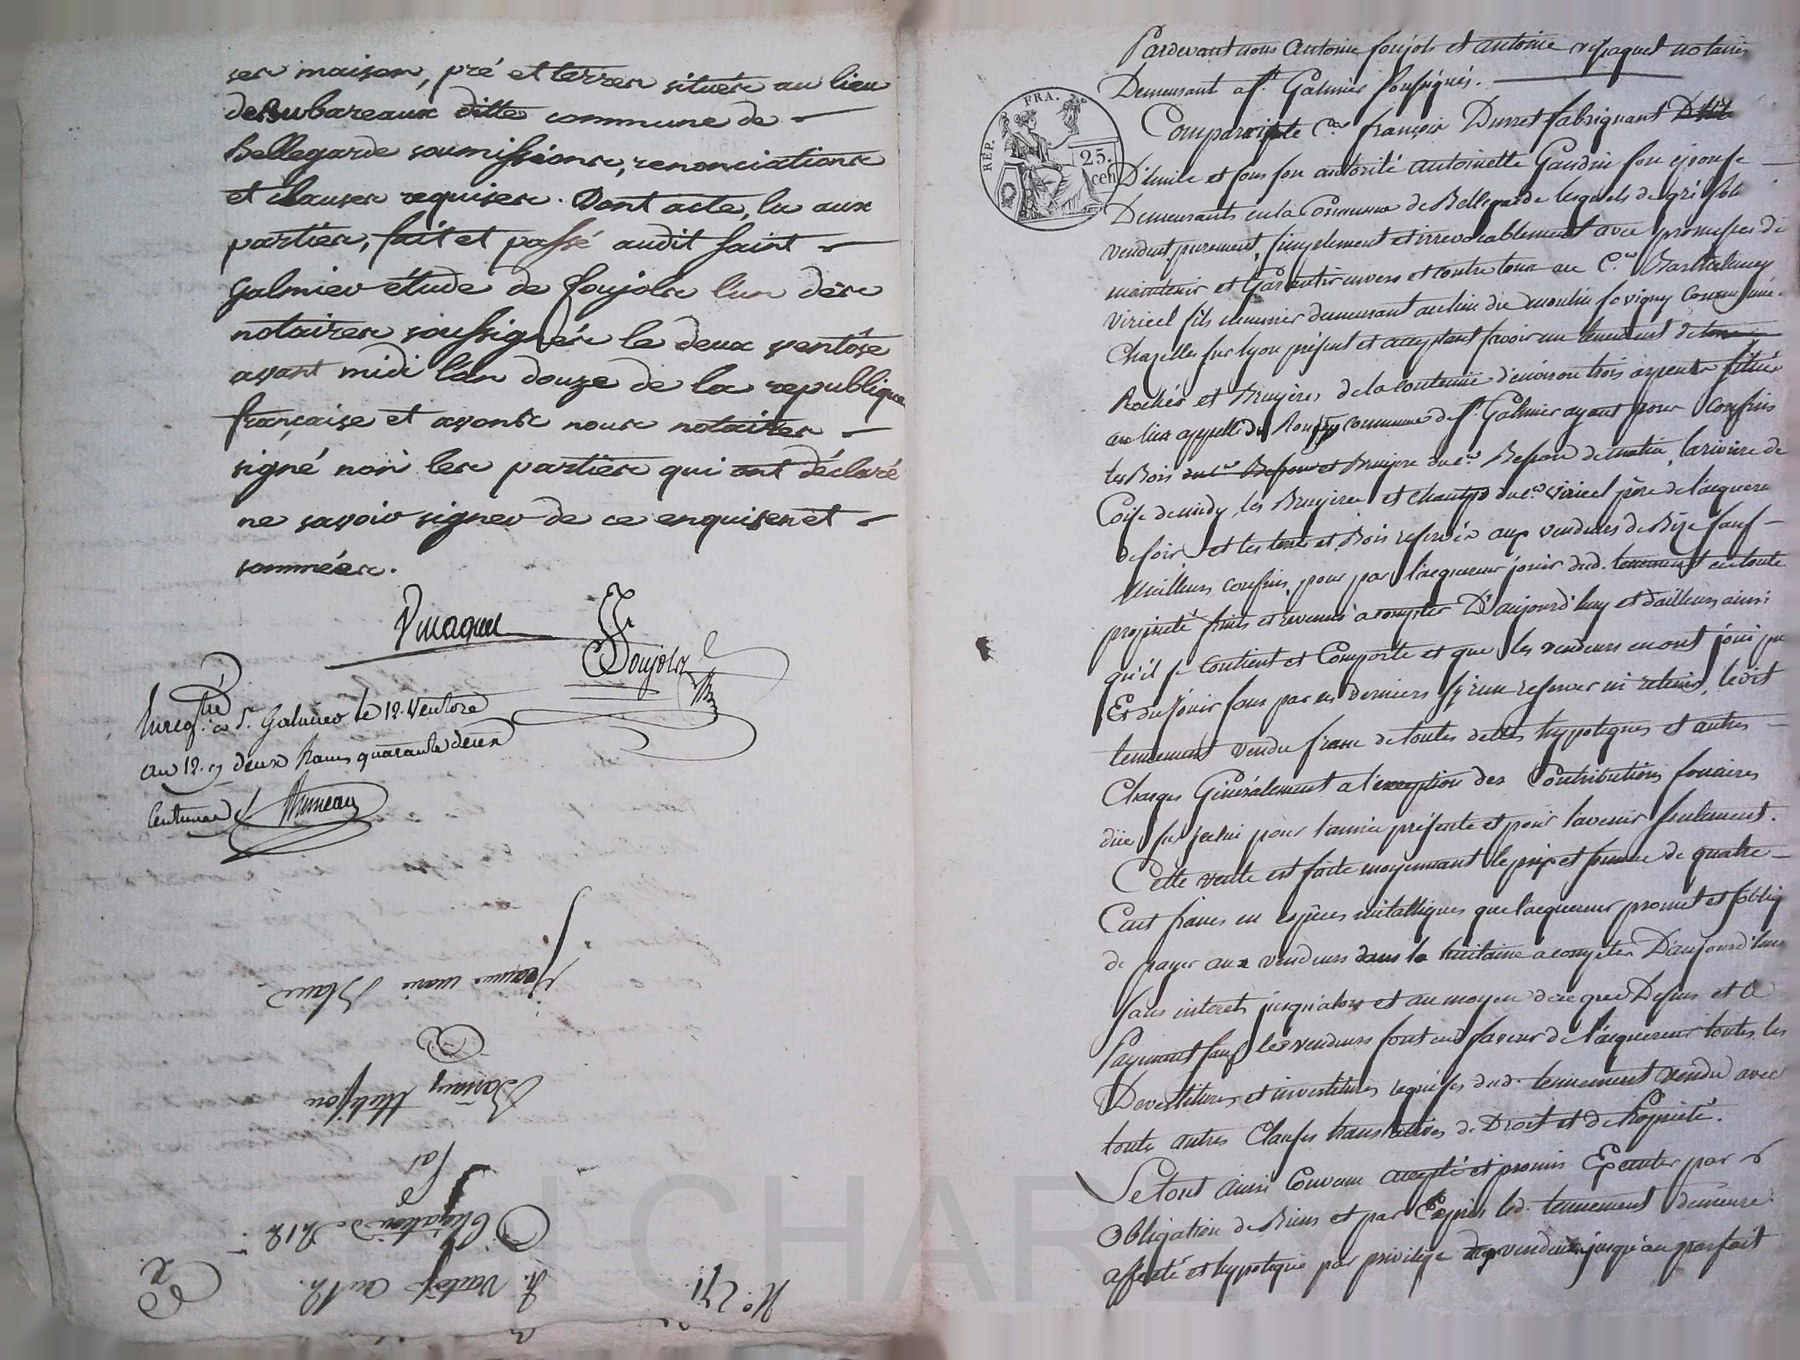 ses maison, pré et terres situés au lieu
de Bubareaux ditte commune de
Bellegarde soumissions, renonciations
et clauses requises. Dont acte, lu aux
parties, fait et passé audit Saint
Galmier étude de Foujols l'un des
notaires soussignés le deux ventôse
avant midi l'an douze de la republique
française et avons nous notaires
signé non les parties qui ont déclaré
ne savoir signer de ce enquises et
sommées.
Foujols
Enregtré à St. Galmier le 12 Ventose
an 12. deux francs quarante deux
Centimes
N°. 271
2. ventose an 12.
Obligation de
Par
A
Jeanne marie Blanc
Pardevant nous Antoine foujols et antoine notaires
Demeurant a St. Galmier soussignés.
REP. FRA.
25. cen
Comparaissent Cen. françois Durret fabriquant
D'emile et sous son autorité antoinette Gaudin son epouse
Demeurants en la Commune de Bellegarde lesquels de gré
vendent purement, simplement et irrevocablement avec promesses de
maintenir et Garantir envers et contre tous au Cen. Barthelemy
Viricel fils meunier demeurant au lieu du moulin
Chazelles sur lyon présent et acceptant savoir un tenement de
Rochers et Bruyeres de la contenue d'environ trois arpents situé
au lieu appellé commune de St. Galmier ayant pour Confins
les Bois et Bruyere du Cen. Besson de matin, la riviere de
Coise de midy, les Bruyeres et champs du Cen. Viricel père de l'acquereur
de soir, et les terre et Bois reservés aux vendeurs de Bize sauf
Meilleurs confins, pour par l'acquereur jouir dud. tennement en toute
proprieté fruits et revenus a compter D'aujourd'huy et d'ailleurs ainsi
qu'il se Contient et Comporte et que les vendeurs en ont joui pu
Et du Jouir sans par ces derniers s'y rien reserver ni retenir, ledit
tennement vendu franc de toutes dettes hypoteques et autres
Charges Généralement a l'exception des Contributions foncieres
dües sur pour l'année présente et pour l'avenir seulement.
Cette vente est faite moyennant le prix et somme de quatre
Cent francs en espèces métalliques que l'acquereur promet et s'oblige
de payer aux vendeurs dans la huitaine a compter D'aujourd'huy
sans interets jusqu'alors et au moyen de ce que Dessus et le
Payement fait les vendeurs font en faveur de l'acquereur toutes les
Devestitures et investitures requises dud. tennement vendu avec
toute autres Clauses translatives de Droit et de Propriété.
Le tout ainsi Convenu accepté et promis Executer par
Obligation de Biens et par Exprès led. tennement demeure
affecté et hypotequé par privilege vendeurs jusqu'au parfait